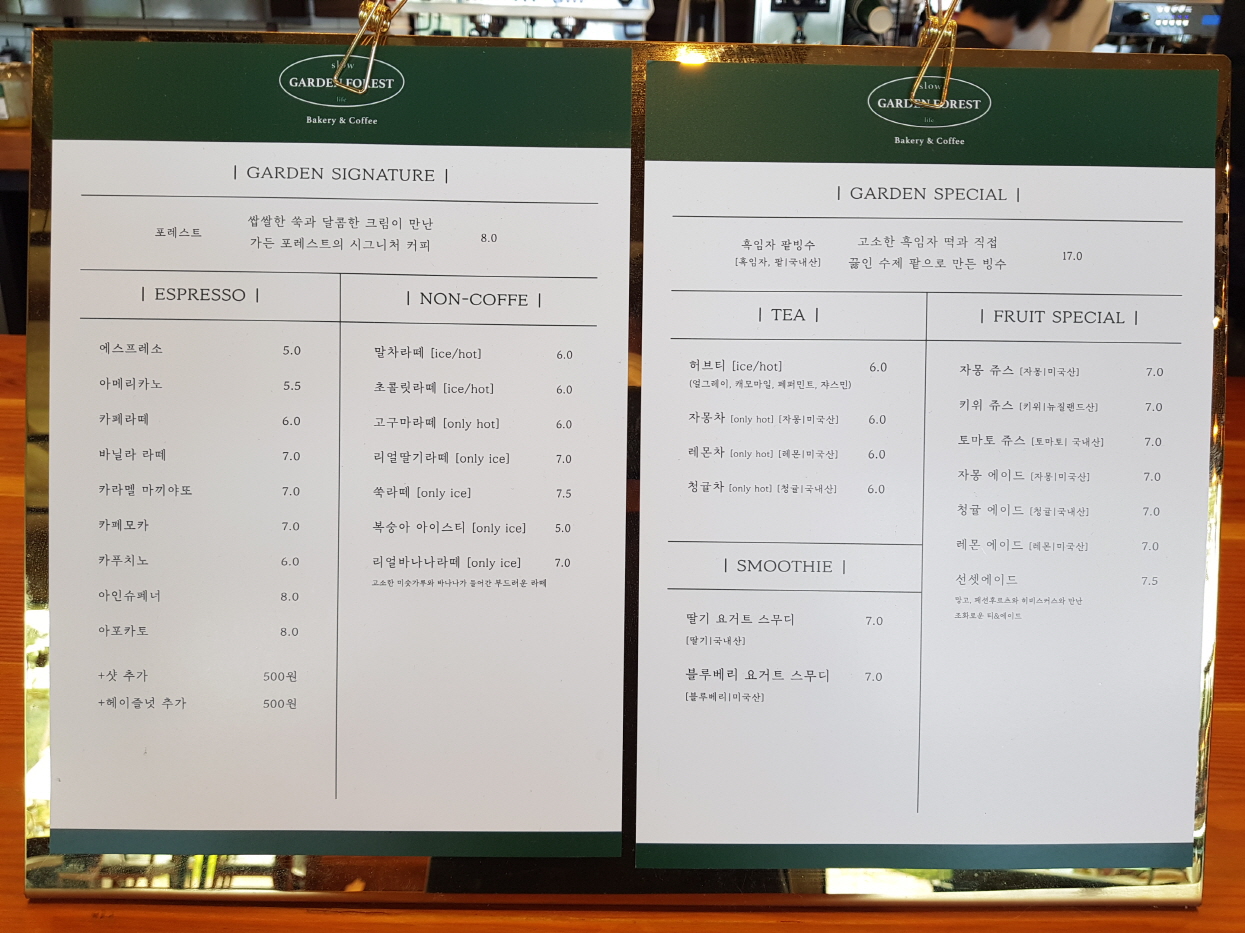 slow
GARDEN FOREST
life
Bakery & Coffee
| GARDEN SIGNATURE |
포레스트
쌉쌀한 쑥과 달콤한 크림이 만난
가든 포레스트의 시그니처 커피
8.0
| ESPRESSO |
에스프레소 5.0
아메리카노 5.5
카페라떼 6.0
바닐라 라떼 7.0
카라멜 마끼야또 7.0
카페모카 7.0
카푸치노 6.0
아인슈페너 8.0
아포카토 8.0
+샷 추가 500원
+헤이즐넛 추가 500원
| NON-COFFE |
말차라떼 [ice/hot] 6.0
초콜릿라떼 [ice/hot] 6.0
고구마라떼 [only hot] 6.0
리얼딸기라떼 [only ice] 7.0
쑥라떼 [only ice] 7.5
복숭아 아이스티 [only ice] 5.0
리얼바나나라떼 [only ice] 7.0
고소한 미숫가루와 바나나가 들어간 부드러운 라떼
slow
GARDEN FOREST
life
Bakery & Coffee
| GARDEN SPECIAL |
흑임자 팥빙수
[흑임자, 팥|국내산]
고소한 흑임자 떡과 직접
끓인 수제 팥으로 만든 빙수
17.0
| TEA |
허브티 [ice/hot] 6.0
(얼그레이, 캐모마일, 페퍼민트, 쟈스민)
자몽차 [only hot] [자몽|미국산] 6.0
레몬차 [only hot] [레몬|미국산] 6.0
청귤차 [only hot] [청귤|국내산] 6.0
| SMOOTHIE |
딸기 요거트 스무디 7.0
[딸기|국내산]
블루베리 요거트 스무디 7.0
[블루베리|미국산]
| FRUIT SPECIAL |
자몽 쥬스 [자몽|미국산] 7.0
키위 쥬스 [키위|뉴질랜드산] 7.0
토마토 쥬스 [토마토| 국내산] 7.0
자몽 에이드 [자몽|미국산] 7.0
청귤 에이드 [청귤|국내산] 7.0
레몬 에이드 [레몬|미국산] 7.0
선셋에이드 7.5
망고, 패션후르츠와 히비스커스와 만난
조화로운 티&에이드